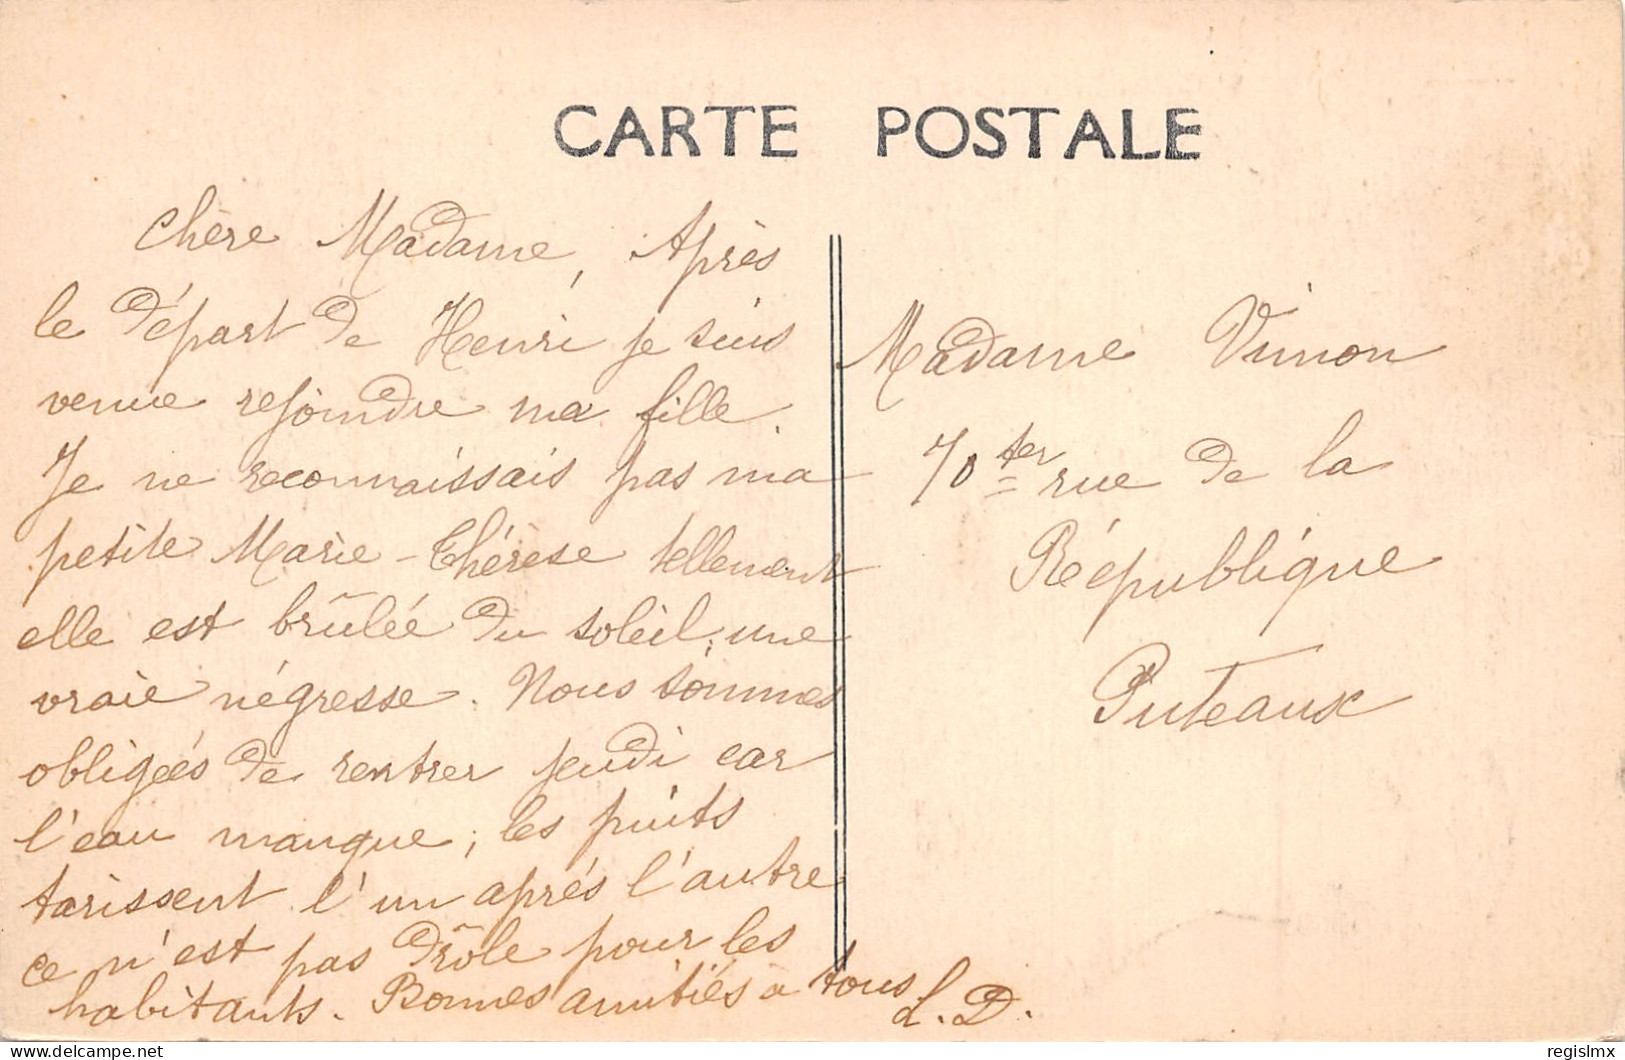 CARTE POSTALE
Chère Madame, Après
le départ de Henri je suis
venue rejoindre ma fille.
Je ne reconnaissais pas ma
petite Marie-Thérèse tellement
elle est brûlée du soleil, une
vraie négresse. Nous sommes
obligées de rentrer jeudi car
l'eau manque, les puits
tarissent l'un après l'autre
ce n'est pas drôle pour les
habitants. Bonnes amitiés à tous
L. D.
Madame Vimon
70 ter rue de la
République
Puteaux
regislmx